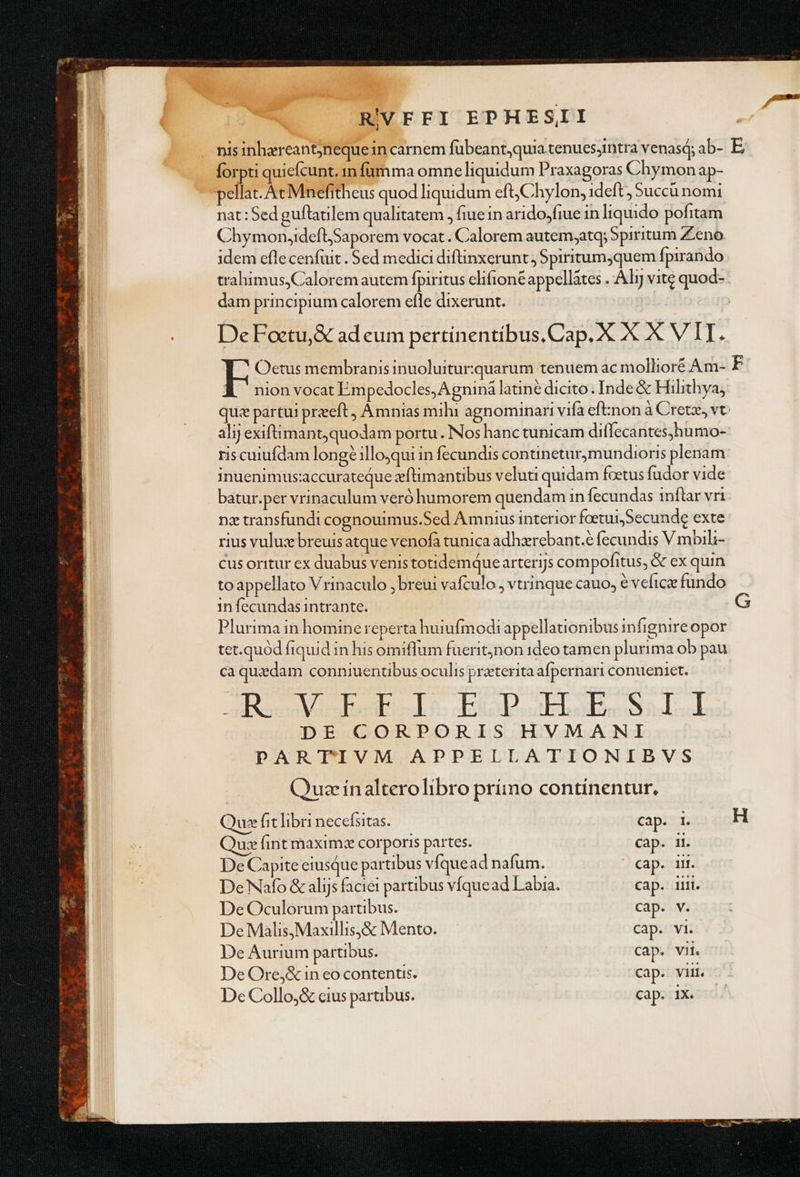 RVFFI EPHESII
nis inhæreant,neque in carnem ſubeant,quia tenues,intra venasq́; ab- E
ſorpti quieſcunt. in ſumma omne liquidum Praxagoras Chymon ap-
pellat. At Mneſitheus quod liquidum eſt,Chylon, ideſt, Succū nomi
nat: Sed guſtatilem qualitatem, ſiue in arido,ſiue in liquido poſitam
Chymon,ideſt,Saporem vocat. Calorem autem,atq; Spiritum Zeno
idem eſſe cenſuit. Sed medici diſtinxerunt, Spiritum,quem ſpirando
trahimus,Calorem autem ſpiritus eliſionē appellātes. Alij vitę quod-
dam principium calorem eſſe dixerunt.
De Fœtu,& ad eum pertinentibus. Cap. XXXVII.
FOetus membranis inuoluitur:quarum tenuem ac mollioré Am- F
nion vocat Empedocles, Agniná latinè dicito. Inde & Hilithya,
quæ partui præeſt, Amnias mihi agnominari viſa eſt:non à Cretæ, vt
alij exiſtimant,quodam portu. Nos hanc tunicam diſſecantes,humo-
ris cuiuſdam longè illo,qui in fecundis continetur,mundioris plenam
inuenimus:accurateq́ue æſtimantibus veluti quidam fœtus ſudor vide
batur.per vrinaculum verò humorem quendam in ſecundas inſtar vri
næ transfundi cognouimus.Sed Amnius interior fœtui,Secundę exte
rius vuluæ breuis atque venoſa tunica adhærebant.è ſecundis Vmbili-
cus oritur ex duabus venis totidemq́ue arterijs compoſitus, & ex quin
to appellato Vrinaculo, breui vaſculo, vtrinque cauo, è veſicæ fundo
in ſecundas intrante. G
Plurima in homine reperta huiuſmodi appellationibus inſignire opor
tet.quòd ſiquid in his omiſſum fuerit,non ideo tamen plurima ob pau
ca quædam conniuentibus oculis præterita aſpernari conueniet.
RVFFI EPHESII
DE CORPORIS HVMANI
PARTIVM APPELLATIONIBVS
Quæ in altero libro primo continentur.
Quæ ſit libri neceſsitas. cap. i. H
Quæ ſint maximæ corporis partes. cap. ii.
De Capite eiusq́ue partibus vſquead naſum. cap. iii.
De Naſo & alijs faciei partibus vſquead Labia. cap. iiii.
De Oculorum partibus. cap. v.
De Malis,Maxillis,& Mento. cap. vi.
De Aurium partibus. cap. vii.
De Ore,& in eo contentis. cap. viii.
De Collo,& eius partibus. cap. ix.